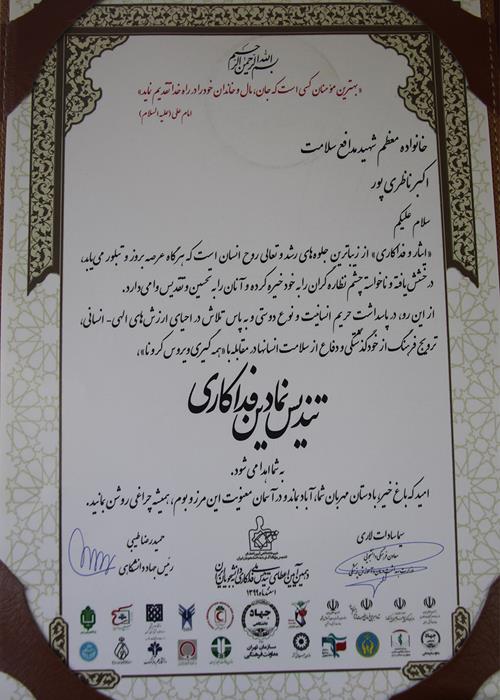 بسم الله الرحمن الرحیم
«بهترین مؤمنان کسی است که جان، مال و خاندان خود را در راه خدا تقدیم نماید»
امام علی (علیه السلام)
خانواده معظم شهید مدافع سلامت
اکبر ناظری پور
سلام علیکم
«ایثار و فداکاری» از زیباترین جلوه‌های رشد و تعالی روح انسان است که هرگاه عرصه بروز و تبلور می‌یابد،
درخشش یافته و ناخواسته چشم نظاره‌گران را به خود خیره کرده و آنان را به تحسین و تقدیس وا می‌دارد.
از این رو، در پاسداشت حریم انسانیت و نوع دوستی و به پاس تلاش در احیای ارزش‌های الهی- انسانی،
ترویج فرهنگ از خودگذشتگی و دفاع از سلامت انسانها در مقابله با «همه گیری ویروس کرونا»،
تندیس نمادین فداکاری
به شما اهدا می شود.
امید که باغ خیر، با دستان مهربان شما، آباد بماند و در آسمان معنویت این مرز و بوم، همیشه چراغی روشن بمانید.
سما سادات لاری
معاون فرهنگی و دانشجویی
حمیدرضا طیبی
رئیس جهاد دانشگاهی
دهمین آیین اعطای تندیس ملی فداکاری دانشجویان ایران
اسفند ماه ۱۳۹۹
سازمان تهران
معاونت فرهنگی